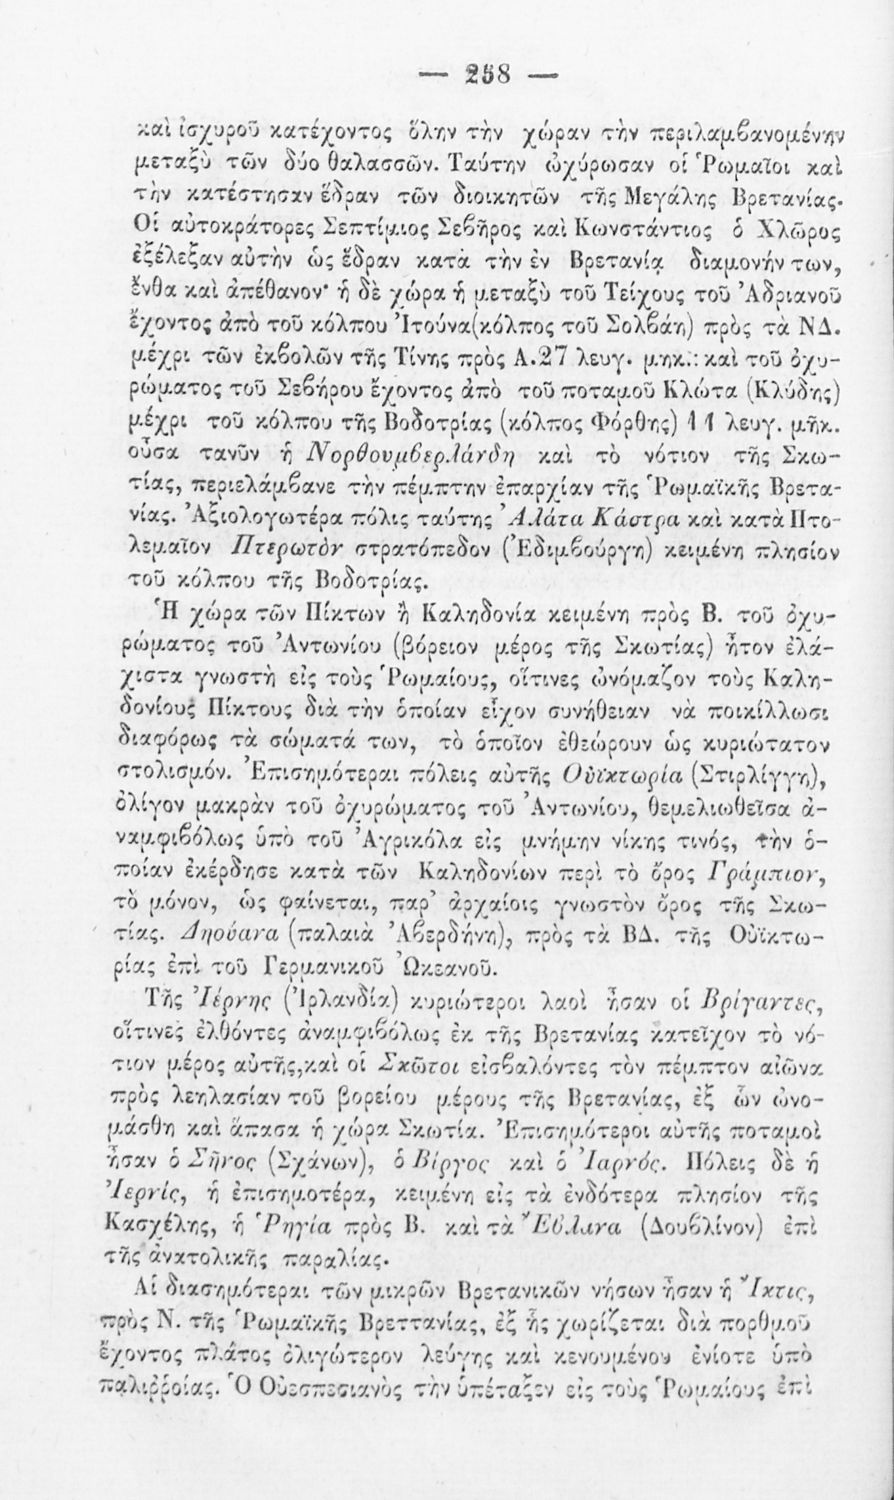 — 258 —
καὶ ἰσχυροῦ κατέχοντος ὅλην τὴν χώραν τὴν περιλαμβανομένην
μεταξὺ τῶν δύο θαλασσῶν. Ταύτην ὠχύρωσαν οἱ Ῥωμαῖοι καὶ
τὴν κατέστησαν ἕδραν τῶν διοικητῶν τῆς Μεγάλης Βρετανίας.
Οἱ αὐτοκράτορες Σεπτίμιος Σεβῆρος καὶ Κωνστάντιος ὁ Χλῶρος
ἐξέλεξαν αὐτὴν ὡς ἕδραν κατὰ τὴν ἐν Βρετανίᾳ διαμονήν των,
ἔνθα καὶ ἀπέθανον· ἡ δὲ χώρα ἡ μεταξὺ τοῦ Τείχους τοῦ Ἀδριανοῦ
ἔχοντος ἀπὸ τοῦ κόλπου Ἰτούνα(κόλπος τοῦ Σολβάη) πρὸς τὰ ΝΔ.
μέχρι τῶν ἐκβολῶν τῆς Τίνης πρὸς Α.27 λευγ. μηκ.: καὶ τοῦ ὀχυ-
ρώματος τοῦ Σεβήρου ἔχοντος ἀπὸ τοῦ ποταμοῦ Κλώτα (Κλύδης)
μέχρι τοῦ κόλπου τῆς Βοδοτρίας (κόλπος Φόρθης) 11 λευγ. μῆκ.
οὖσα τανῦν ἡ Νορθουμβερλάνδη καὶ τὸ νότιον τῆς Σκω-
τίας, περιελάμβανε τὴν πέμπτην ἐπαρχίαν τῆς Ῥωμαϊκῆς Βρετα-
νίας. Ἀξιολογωτέρα πόλις ταύτης Ἀλάτα Κάστρα καὶ κατὰ Πτο-
λεμαῖον Πτερωτὸν στρατόπεδον (Ἐδιμβούργη) κειμένη πλησίον
τοῦ κόλπου τῆς Βοδοτρίας.
Ἡ χώρα τῶν Πίκτων ἢ Καληδονία κειμένη πρὸς Β. τοῦ ὀχυ-
ρώματος τοῦ Ἀντωνίου (βόρειον μέρος τῆς Σκωτίας) ἦτον ἐλά-
χιστα γνωστὴ εἰς τοὺς Ῥωμαίους, οἵτινες ὠνόμαζον τοὺς Καλη-
δονίους Πίκτους διὰ τὴν ὁποίαν εἶχον συνήθειαν νὰ ποικίλλωσι
διαφόρως τὰ σώματά των, τὸ ὁποῖον ἐθεώρουν ὡς κυριώτατον
στολισμόν. Ἐπισημότεραι πόλεις αὐτῆς Οὐϊκτωρία (Στιρλίγγη),
ὀλίγον μακρὰν τοῦ ὀχυρώματος τοῦ Ἀντωνίου, θεμελιωθεῖσα ἀ-
ναμφιβόλως ὑπὸ τοῦ Ἀγρικόλα εἰς μνήμην νίκης τινός, τὴν ὁ-
ποίαν ἐκέρδησε κατὰ τῶν Καληδονίων περὶ τὸ ὄρος Γράμπιον,
τὸ μόνον, ὡς φαίνεται, παρ' ἀρχαίοις γνωστὸν ὄρος τῆς Σκω-
τίας. Δηούανα (παλαιὰ Ἀβερδήνη), πρὸς τὰ ΒΔ. τῆς Οὐϊκτω-
ρίας ἐπὶ τοῦ Γερμανικοῦ Ὠκεανοῦ.
Τῆς Ἰέρνης (Ἰρλανδία) κυριώτεροι λαοὶ ἦσαν οἱ Βρίγαντες,
οἵτινες ἐλθόντες ἀναμφιβόλως ἐκ τῆς Βρετανίας κατεῖχον τὸ νό-
τιον μέρος αὐτῆς,καὶ οἱ Σκῶτοι εἰσβαλόντες τὸν πέμπτον αἰῶνα
πρὸς λεηλασίαν τοῦ βορείου μέρους τῆς Βρετανίας, ἐξ ὧν ὠνο-
μάσθη καὶ ἅπασα ἡ χώρα Σκωτία. Ἐπισημότεροι αὐτῆς ποταμοὶ
ἦσαν ὁ Σῆνος (Σχάνων), ὁ Βίργος καὶ ὁ Ἰαρνός. Πόλεις δὲ ἡ
Ἰερνίς, ἡ ἐπισημοτέρα, κειμένη εἰς τὰ ἐνδότερα πλησίον τῆς
Κασχέλης, ἡ Ῥηγία πρὸς Β. καὶ τὰ Ἔβλανα (Δουβλίνον) ἐπὶ
τῆς ἀνατολικῆς παραλίας.
Αἱ διασημότεραι τῶν μικρῶν Βρετανικῶν νήσων ἦσαν ἡ Ἴκτις,
πρὸς Ν. τῆς Ῥωμαϊκῆς Βρεττανίας, ἐξ ἧς χωρίζεται διὰ πορθμοῦ
ἔχοντος πλάτος ὀλιγώτερον λεύγης καὶ κενουμένου ἐνίοτε ὑπὸ
παλιῤῥοίας. Ὁ Οὐεσπεσιανὸς τὴν ὑπέταξεν εἰς τοὺς Ῥωμαίους ἐπὶ